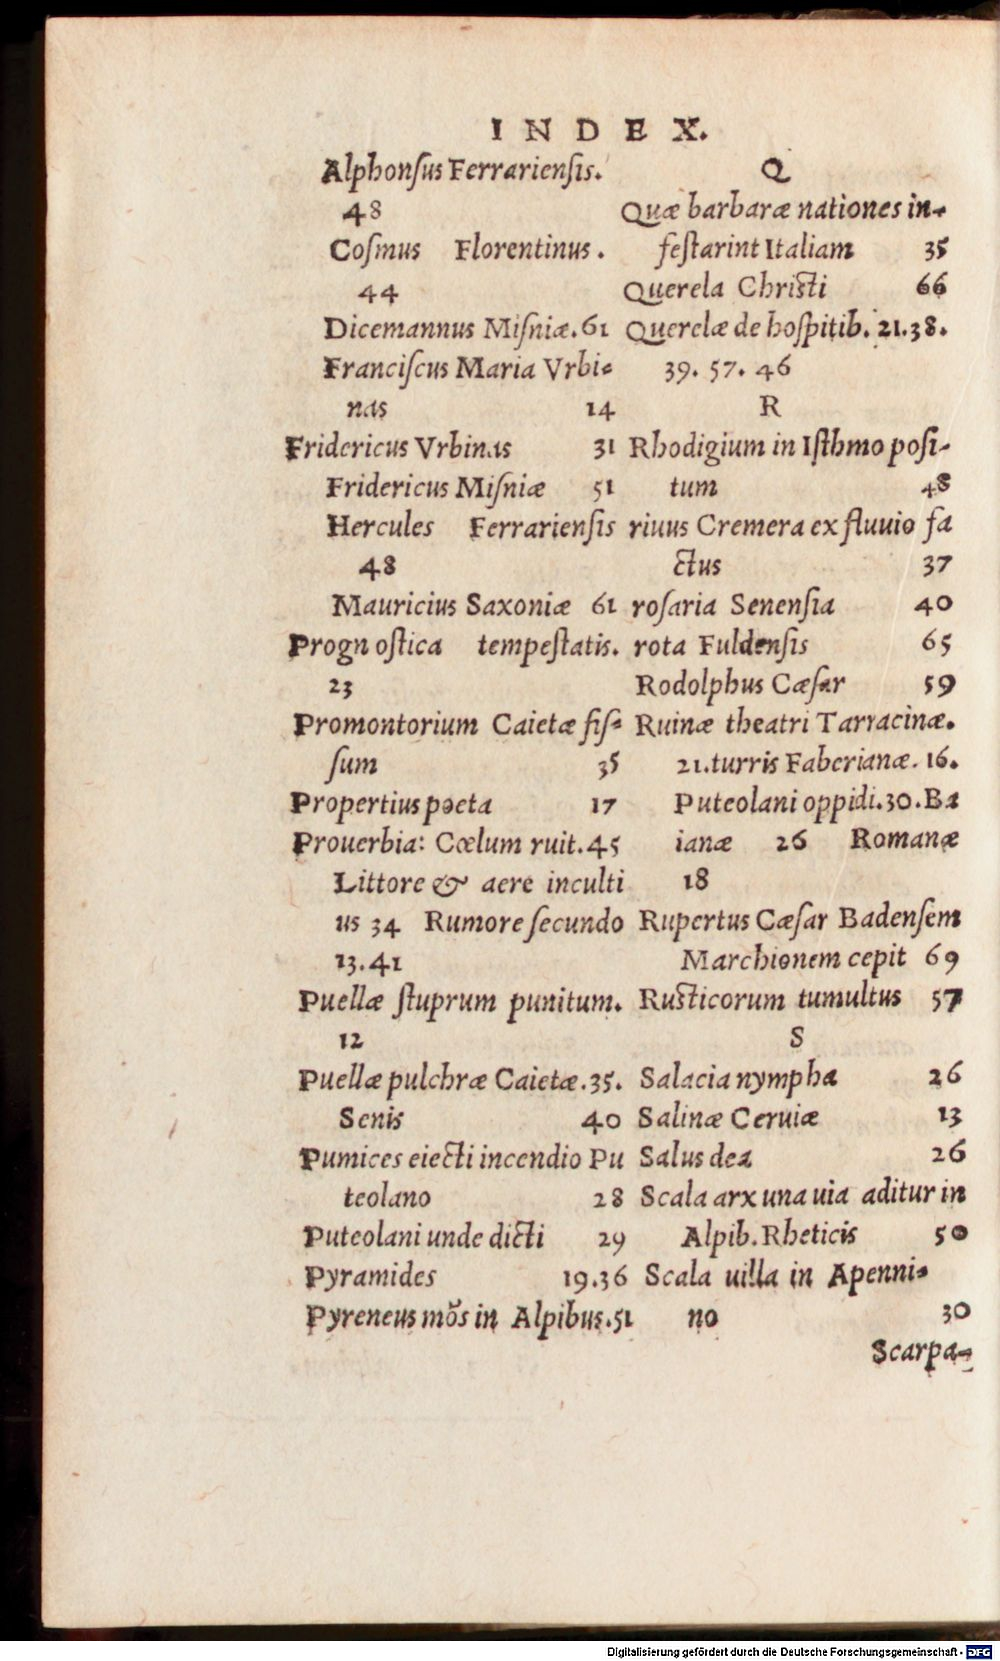 INDEX.
Alphonſus Ferrarienſis.
48
Coſmus Florentinus.
44
Dicemannus Miſniæ. 61
Franciſcus Maria Vrbi-
nas 14
Fridericus Vrbinas 31
Fridericus Miſniæ 51
Hercules Ferrarienſis
48
Mauricius Saxoniæ 61
Progn oſtica tempeſtatis.
23
Promontorium Caietæ fiſ-
ſum 35
Propertius poeta 17
Prouerbia: Cœlum ruit. 45
Littore & aere inculti
us 34 Rumore ſecundo
13.41
Puellæ ſtuprum punitum.
12
Puellæ pulchræ Caietæ. 35.
Senis 40
Pumices eiecti incendio Pu
teolano 28
Puteolani unde dicti 29
Pyramides 19.36
Pyreneus mõs in Alpibus. 51
Q
Quæ barbaræ nationes in-
feſtarint Italiam 35
Querela Chriſti 66
Querelæ de hoſpitib. 21.38.
39. 57. 46
R
Rhodigium in Iſthmo poſi-
tum 48
riuus Cremera ex fluuio fa
ctus 37
roſaria Senenſia 40
rota Fuldenſis 65
Rodolphus Cæſar 59
Ruinæ theatri Tarracinæ.
21. turris Faberianæ. 16.
Puteolani oppidi. 30. Ba
ianæ 26 Romanæ
18
Rupertus Cæſar Badenſem
Marchionem cepit 69
Ruſticorum tumultus 57
S
Salacia nympha 26
Salinæ Ceruiæ 13
Salus dea 26
Scala arx una uia aditur in
Alpib. Rheticis 50
Scala uilla in Apenni-
no 30
Scarpa-
Digitalisierung gefördert durch die Deutsche Forschungsgemeinschaft - DFG